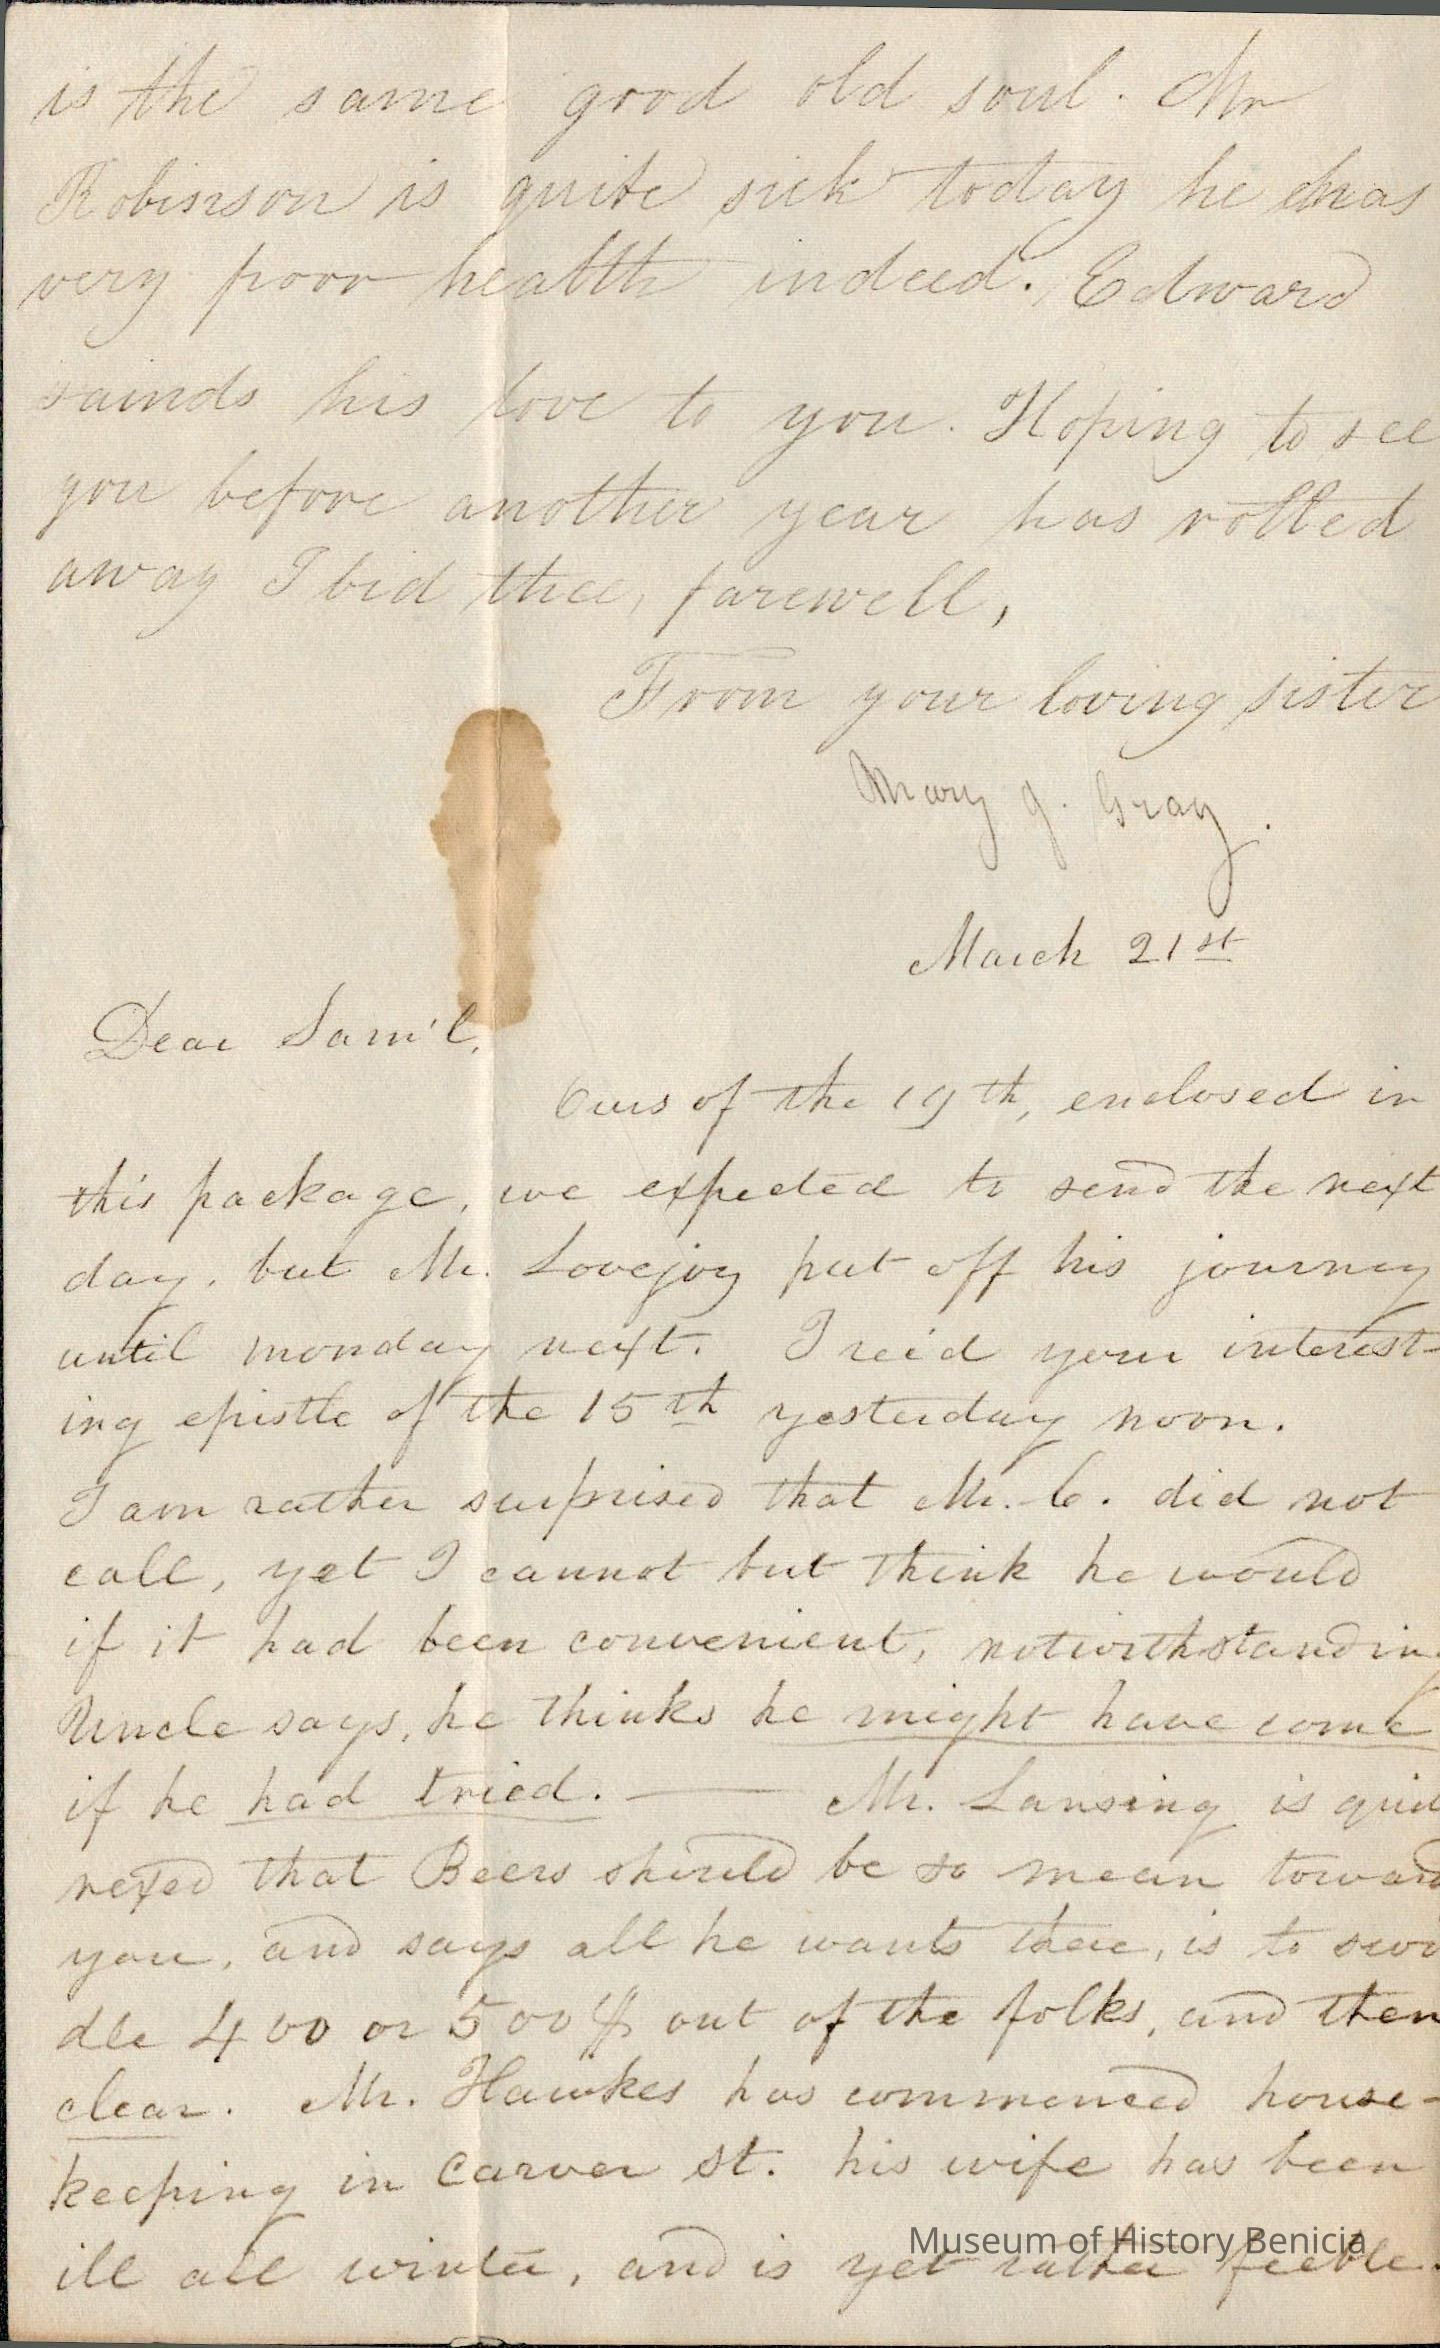 is the same good old soul. Mr
Robinson is quite sick today he has
very poor health indeed. Edward
sainds his love to you. Hoping to see
you before another year has rolled
away I bid thee, farewell,
From your loving sister
Mary J. Gray.
March 21st
Dear Sam'l,
Ours of the 19th, enclosed in
this package, we expected to send the next
day, but Mr. Lovejoy put off his journey
until monday next. I rec'd your interest-
ing epistle of the 15th yesterday noon.
I am rather surprised that Mr. C. did not
call, yet I cannot but think he would
if it had been convenient, notwithstanding
Uncle says, he thinks he might have come
if he had tried. — Mr. Lansing is
vexed that Beers should be so mean toward
you, and says all he wants there, is to swin
dle 400 or 500$ out of the folks, and then
clear. Mr. Hawkes has commenced house-
keeping in Carver st. his wife has been
ill all winter, and is yet rather feeble.
Museum of History Benicia